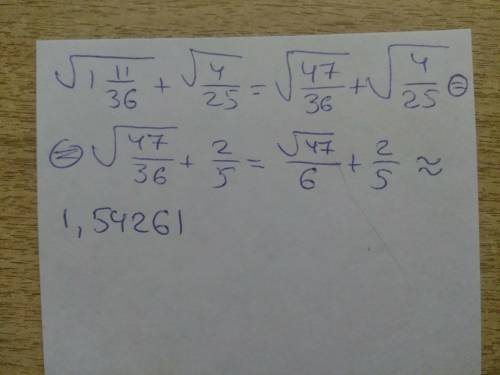 √(1 11/36) + √(4/25) = √(47/36) + √(4/25) ⊜
⊜ √(47/36) + 2/5 = √47/6 + 2/5 ≈
1,54261